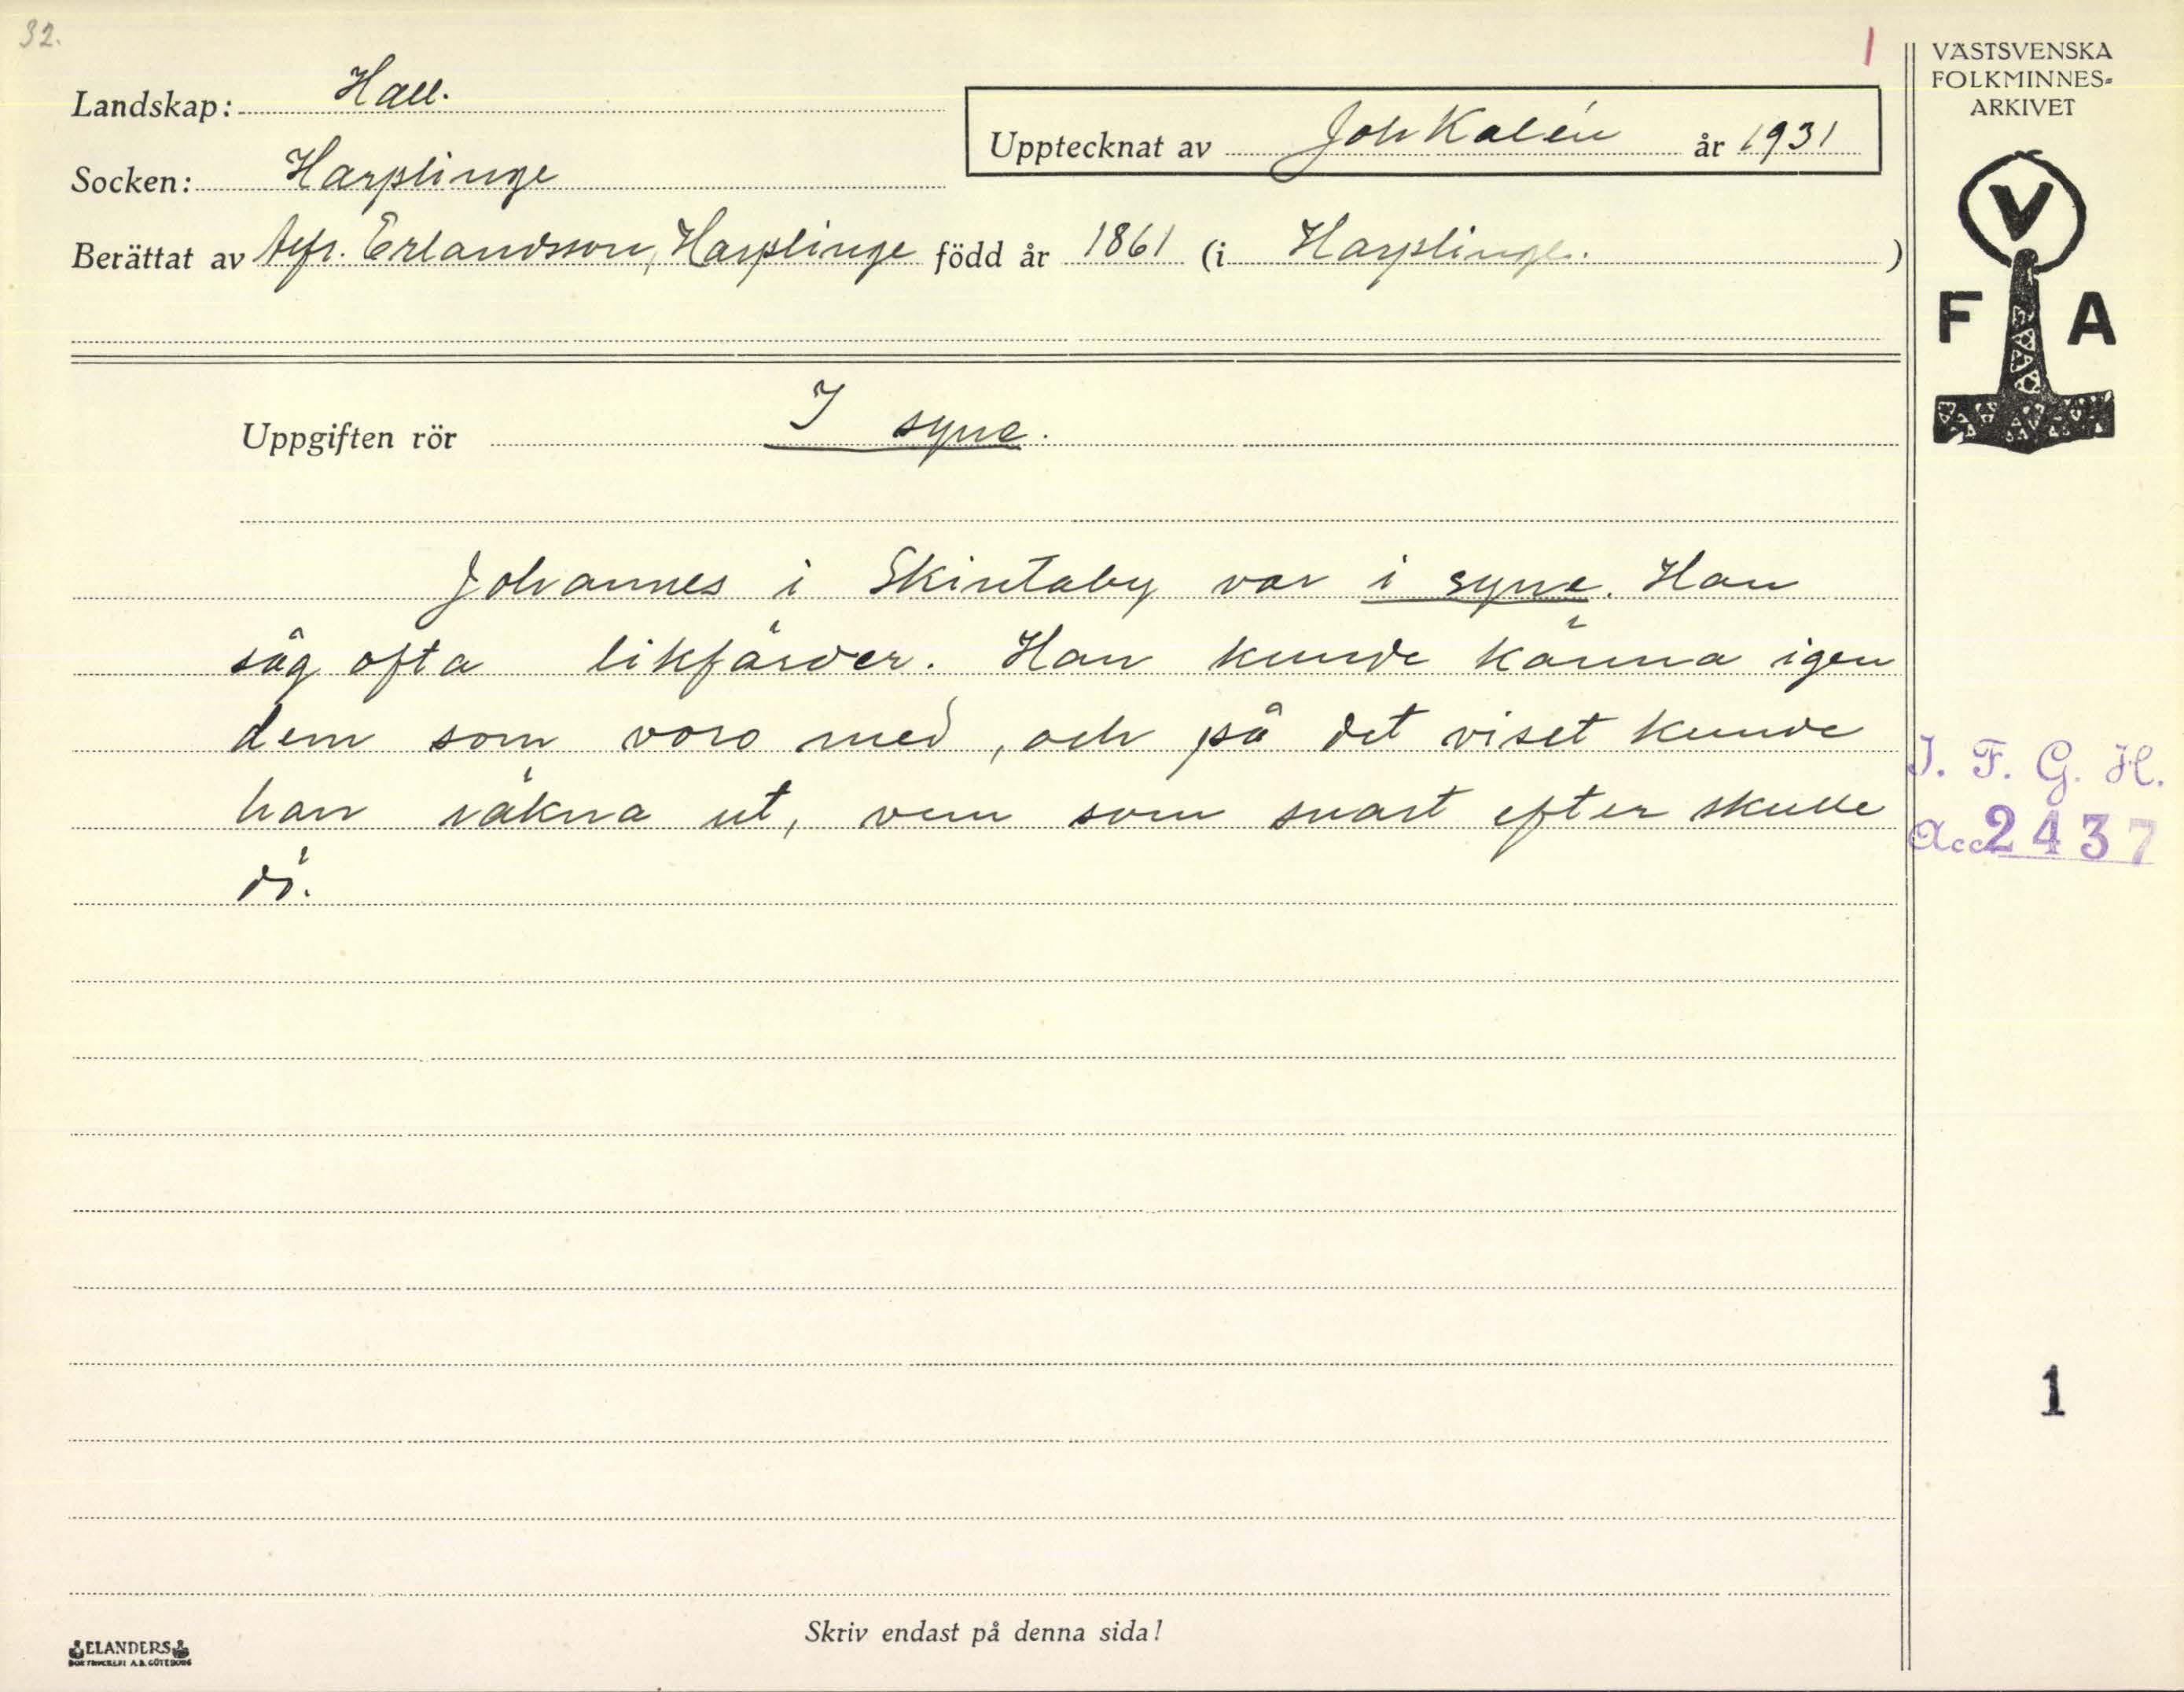 32.
1
VÄSTSVENSKA
FOLKMINNES-
ARKIVET
Landskap: Hall.
Upptecknat av Joh Kalén år 1931
Socken: Harplinge
Berättat av Alfr. Erlandsson, Harplinge född år 1861 (i Harplinge. )
V
F A
Uppgiften rör I syne.
Johannes i Skintaby var i syne. Han
såg ofta likfärder. Han kunde känna igen
dem som voro med, och på det viset kunde
han räkna ut, vem som snart efter skulle
dö.
I. F. G. H.
Acc 2437
1
Skriv endast på denna sida!
ELANDERS
BOKTRYCKERI A.B. GÖTEBORG